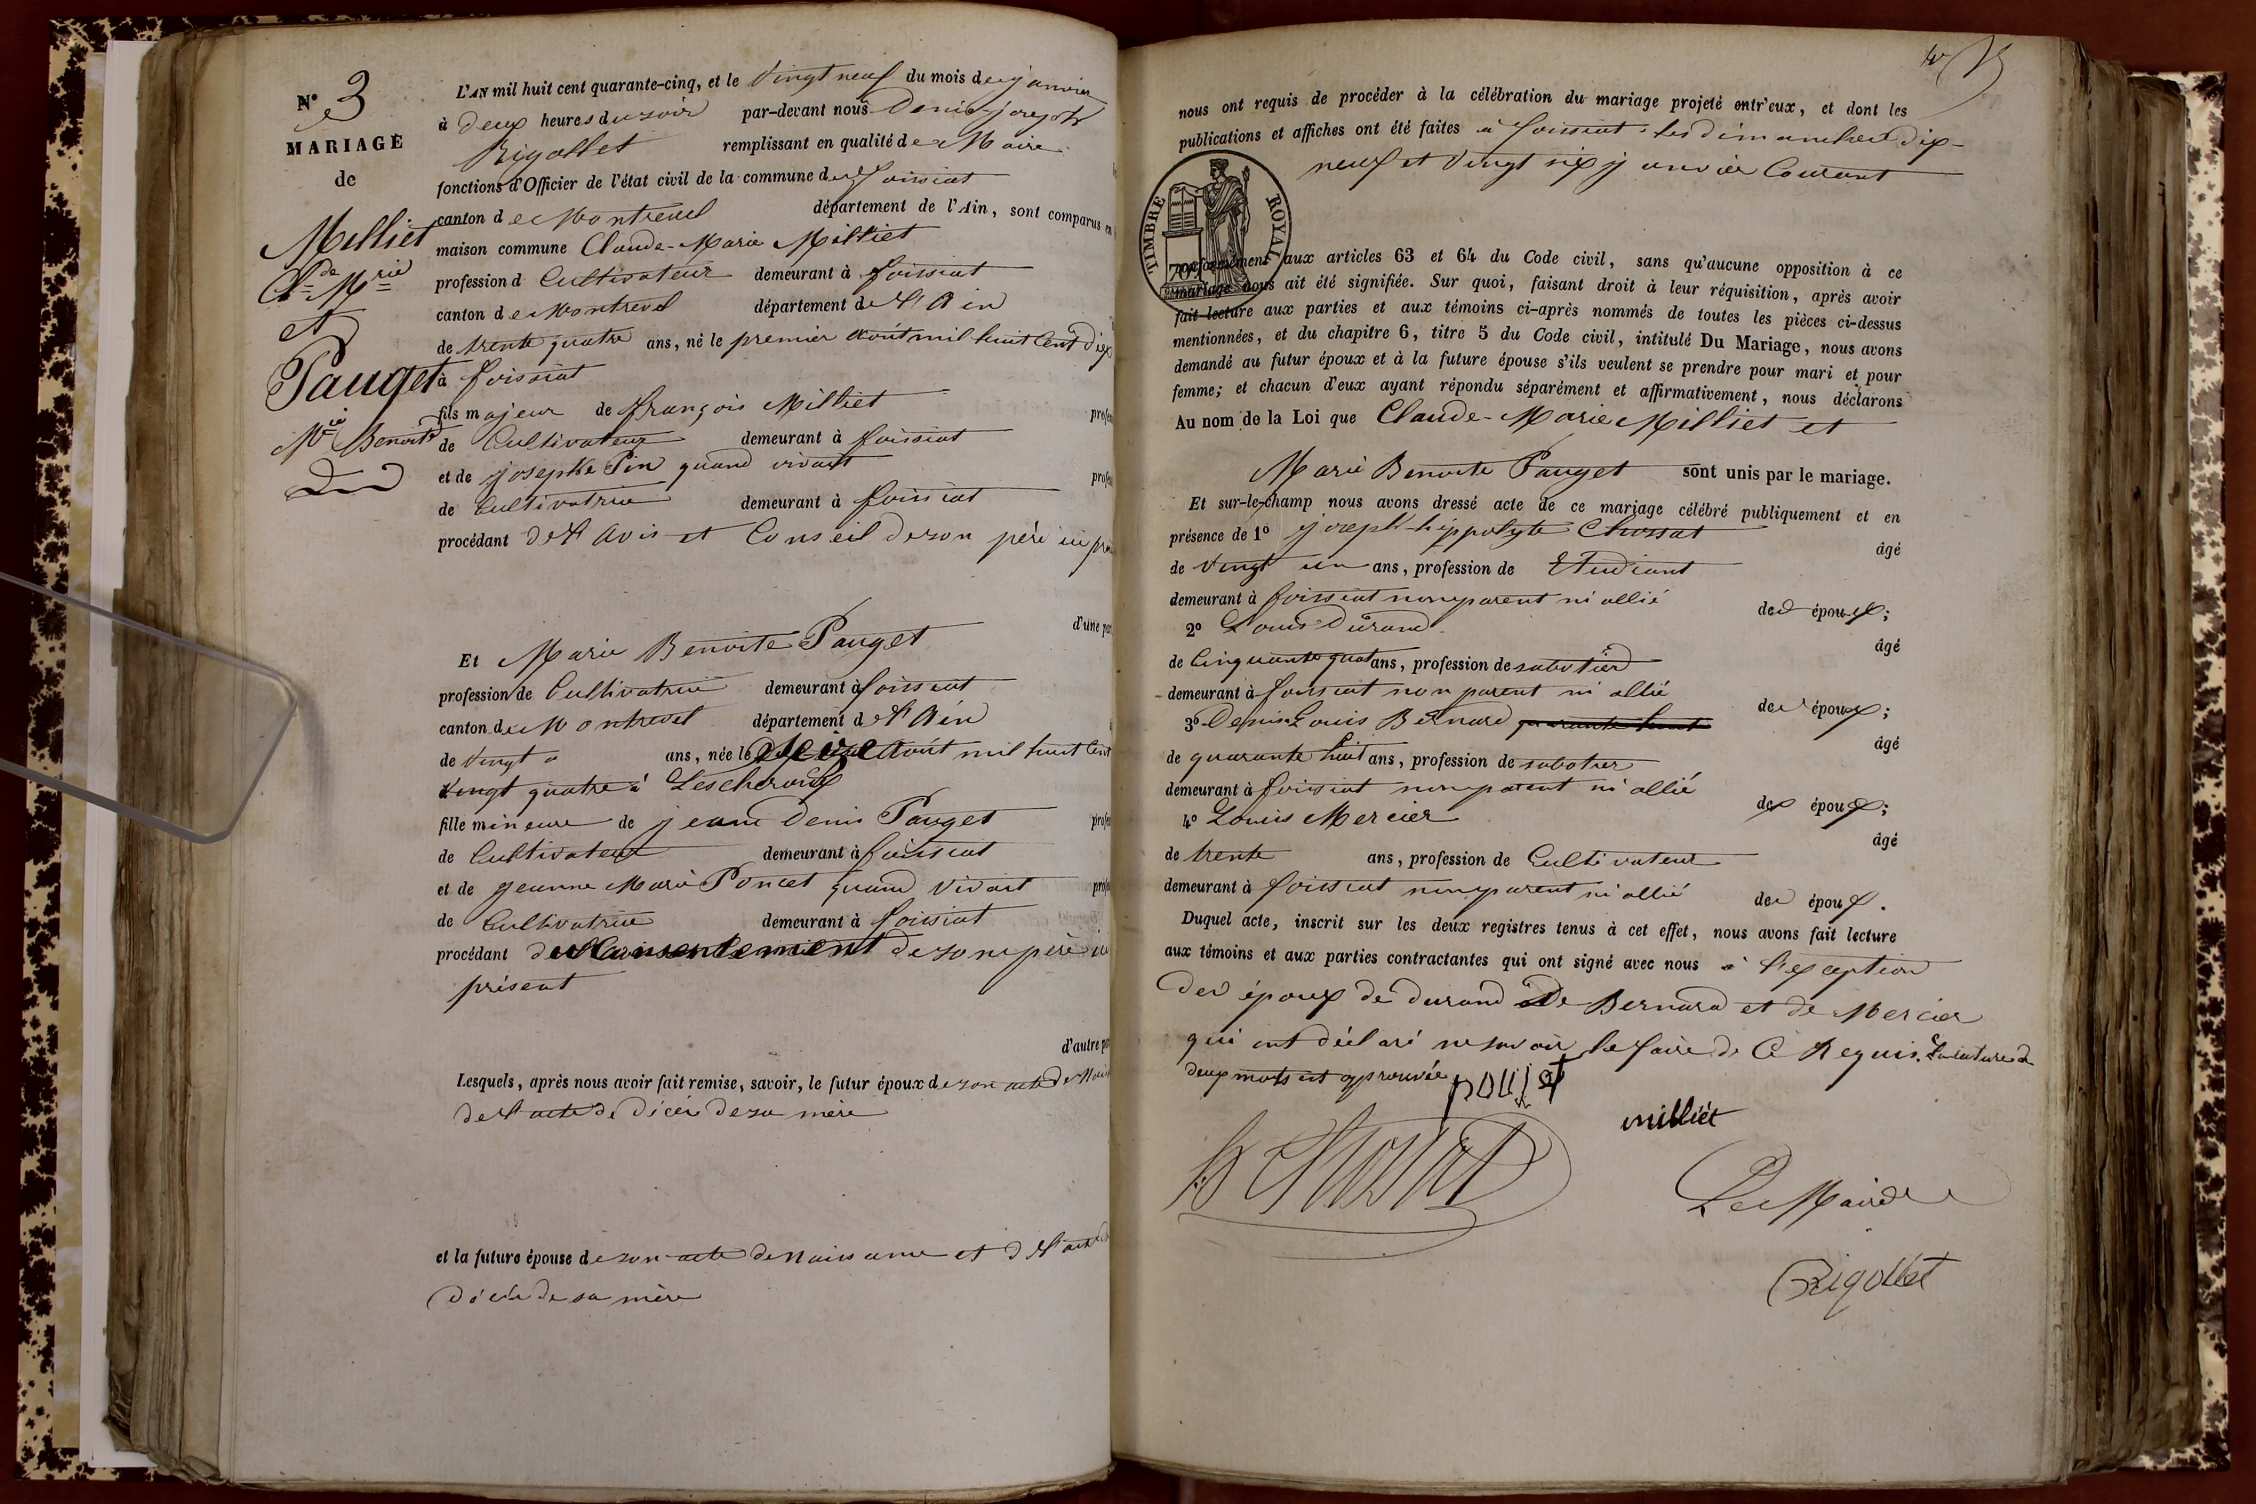 N° 3
MARIAGE
de
Milliet
Cl.de M.rie
et
Pauget
M.ie Benoite
L'AN mil huit cent quarante-cinq, et le vingt neuf du mois de janvier
à deux heures du soir par-devant nous Denis joseph
Rigollet remplissant en qualité de Maire
fonctions d'Officier de l'état civil de la commune de foissiat
canton de Montrevel département de l'Ain, sont comparus en
maison commune Claude-Marie Milliet
profession d Cultivateur demeurant à foissiat
canton de Montrevel département de l'Ain
de trente quatre ans, né le premier août mil huit Cent dix
à foissiat
fils majeur de françois Milliet profes
de Cultivateur demeurant à foissiat
et de josephe Pin quand vivait profes
de Cultivatrice demeurant à foissiat
procédant de l'avis et Conseil de son père ici pré
d'une par
Et Marie Benoite Pauget
profession de Cultivatrice demeurant à foissiat
canton de Montrevel département de l'Ain
de vingt ans, née le seize août mil huit Cent
vingt quatre à Lescheroux
fille mineure de jean Denis Pauget profes
de Cultivateur demeurant à foissiat
et de jeanne Marie Poncet quand vivait profes
de Cultivatrice demeurant à foissiat
procédant du Consentement de son père ici
présent
d'autre par
Lesquels, après nous avoir fait remise, savoir, le futur époux de son acte de Naiss
de l'acte de décès de sa mère
et la future épouse de son acte de Naissance et de l'acte de
décès de sa mère
nous ont requis de procéder à la célébration du mariage projeté entr'eux, et dont les
publications et affiches ont été faites à foissiat les dimanches dix-
neuf et vingt six janvier Courant
TIMBRE ROYAL
70
conformément aux articles 63 et 64 du Code civil, sans qu'aucune opposition à ce
mariage nous ait été signifiée. Sur quoi, faisant droit à leur réquisition, après avoir
fait lecture aux parties et aux témoins ci-après nommés de toutes les pièces ci-dessus
mentionnées, et du chapitre 6, titre 5 du Code civil, intitulé Du Mariage, nous avons
demandé au futur époux et à la future épouse s'ils veulent se prendre pour mari et pour
femme; et chacun d'eux ayant répondu séparément et affirmativement, nous déclarons
Au nom de la Loi que Claude-Marie Milliet et
Marie Benoite Pauget sont unis par le mariage.
Et sur-le-champ nous avons dressé acte de ce mariage célébré publiquement et en
présence de 1° joseph-hippolyte Chossat âgé
de vingt un ans, profession de Etudiant
demeurant à foissiat non parent ni allié des époux;
2° Louis Durand âgé
de Cinquante quat ans, profession de sabotier
demeurant à foissiat non parent ni allié des époux;
3° Denis Louis Bernard quarante huit âgé
de quarante huit ans, profession de sabotier
demeurant à foissiat non parent ni allié des époux;
4° Louis Mercier âgé
de trente ans, profession de Cultivateur
demeurant à foissiat non parent ni allié des époux.
Duquel acte, inscrit sur les deux registres tenus à cet effet, nous avons fait lecture
aux témoins et aux parties contractantes qui ont signé avec nous à l'exception
des époux de durand De Bernard et de Mercier
qui ont déclaré ne savoir le faire de Ce Requis. la rature de
deux mots est approuvée
milliet
h Chossat
Le Maire
Rigollet